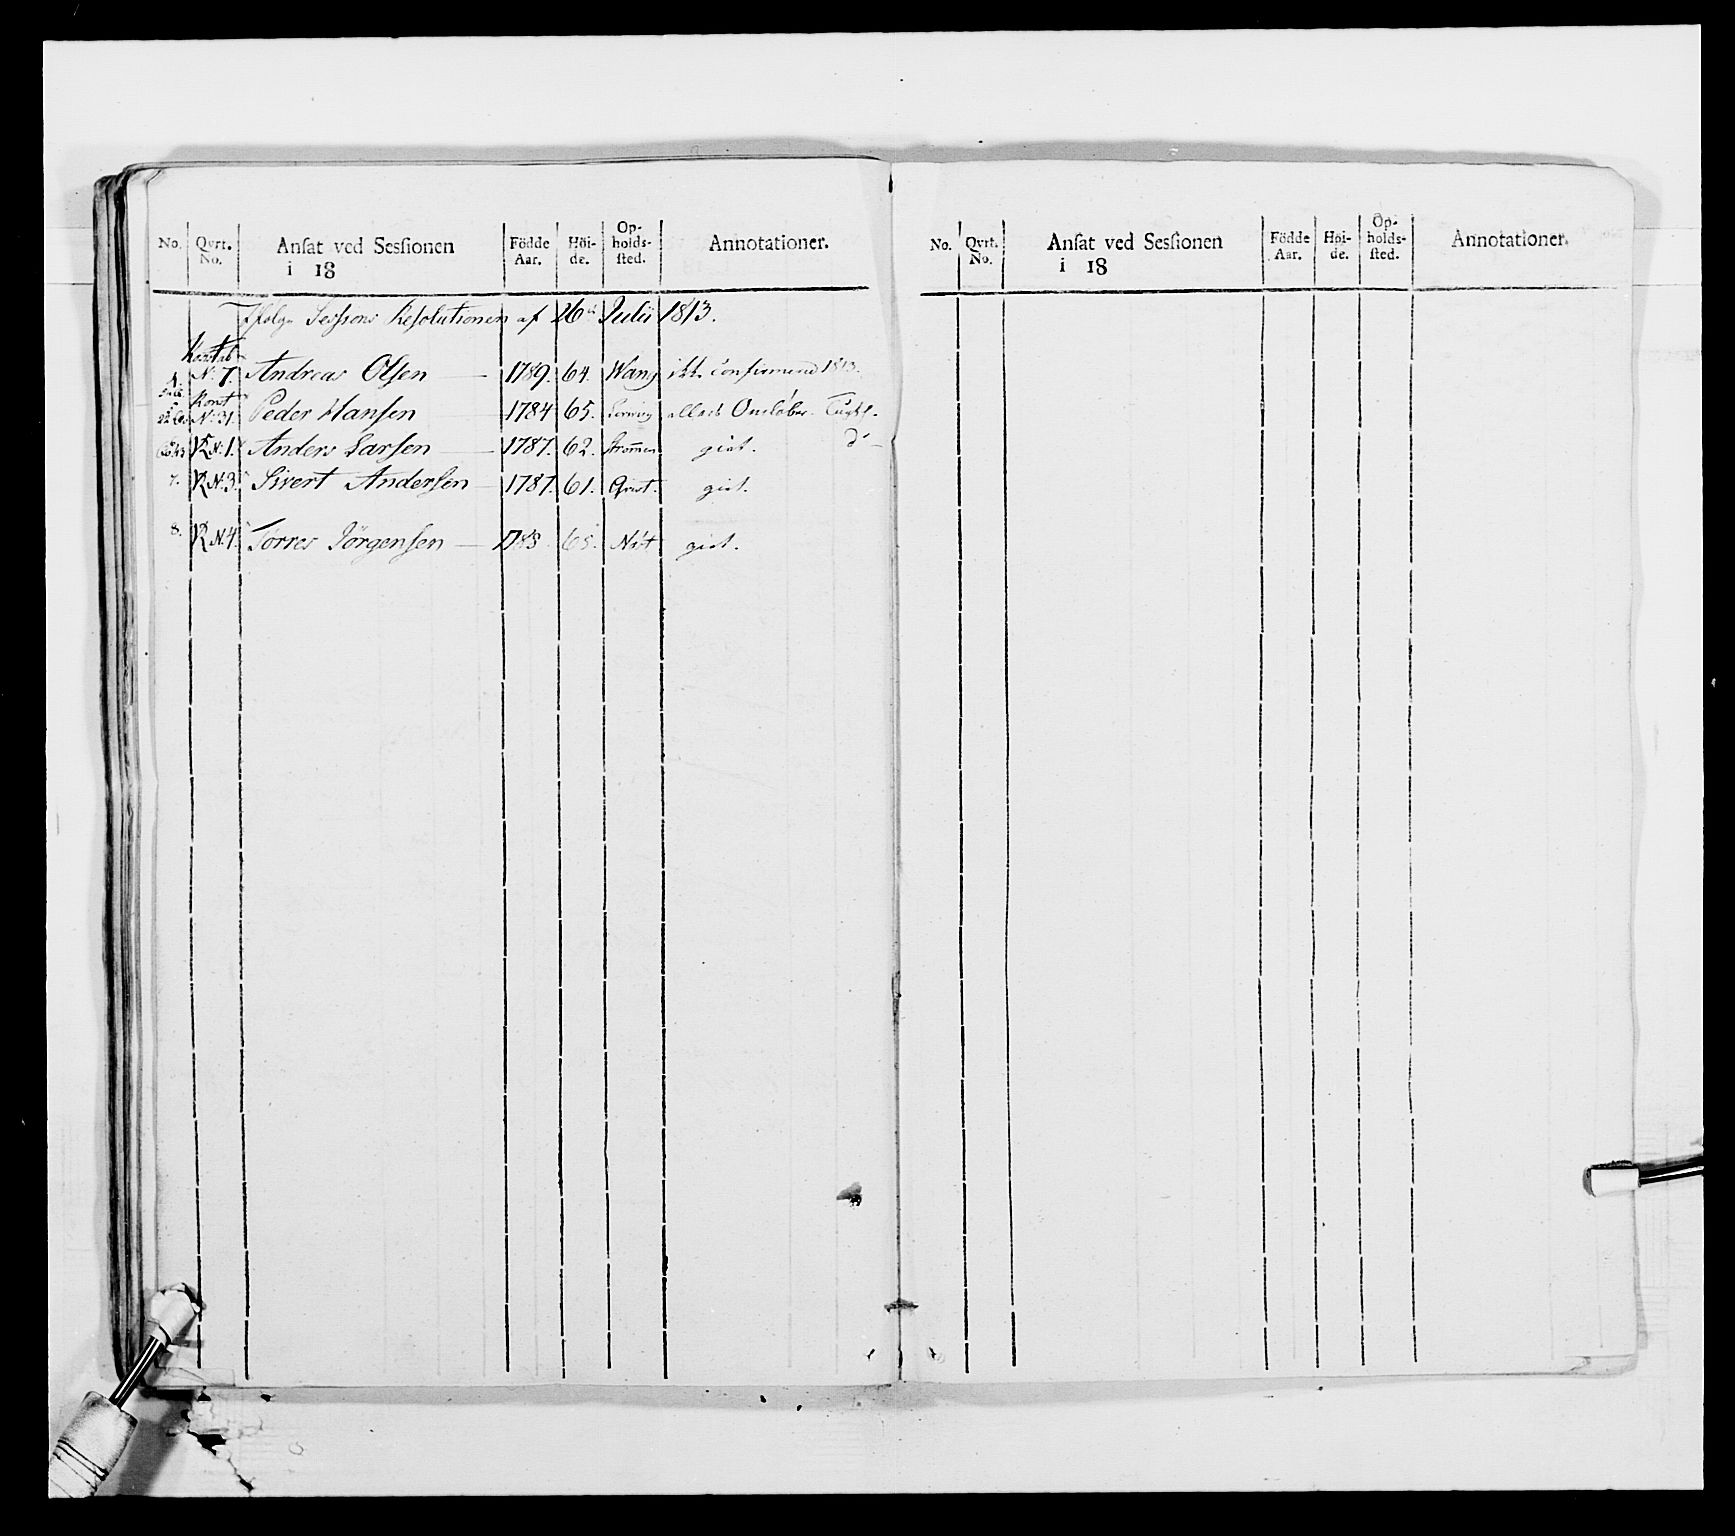 No. Qvrt. No. Anſat ved Sesſionen i 18 Födde Aar. Höi-de. Op-holds-ſted. Annotationer.
Ifolge Sessions Resolutionen af 26de Julii 1813.
Konstab
No 7. Andreas Olsen 1789. 64. Wang ikke Confirmeret 1813.
Konst
No 31. Peder Hansen 1784 65.
No 1. Anders Larsen 1787. 62. Strømen givt. do
7. No 3. Sivert Andersen 1787. 61. givt.
8. No 4. Torres Jörgensen 65. givt.
No. Qvrt. No. Anſat ved Sesſionen i 18 Födde Aar. Höi-de. Op-holds-ſted. Annotationer.